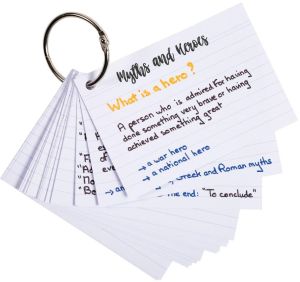 Myths and Heroes
What is a hero?
A person who is admired for having
done something very brave or having
achieved something great
→ a war hero
→ a national hero
Greek and Roman myths
end: "To conclude"